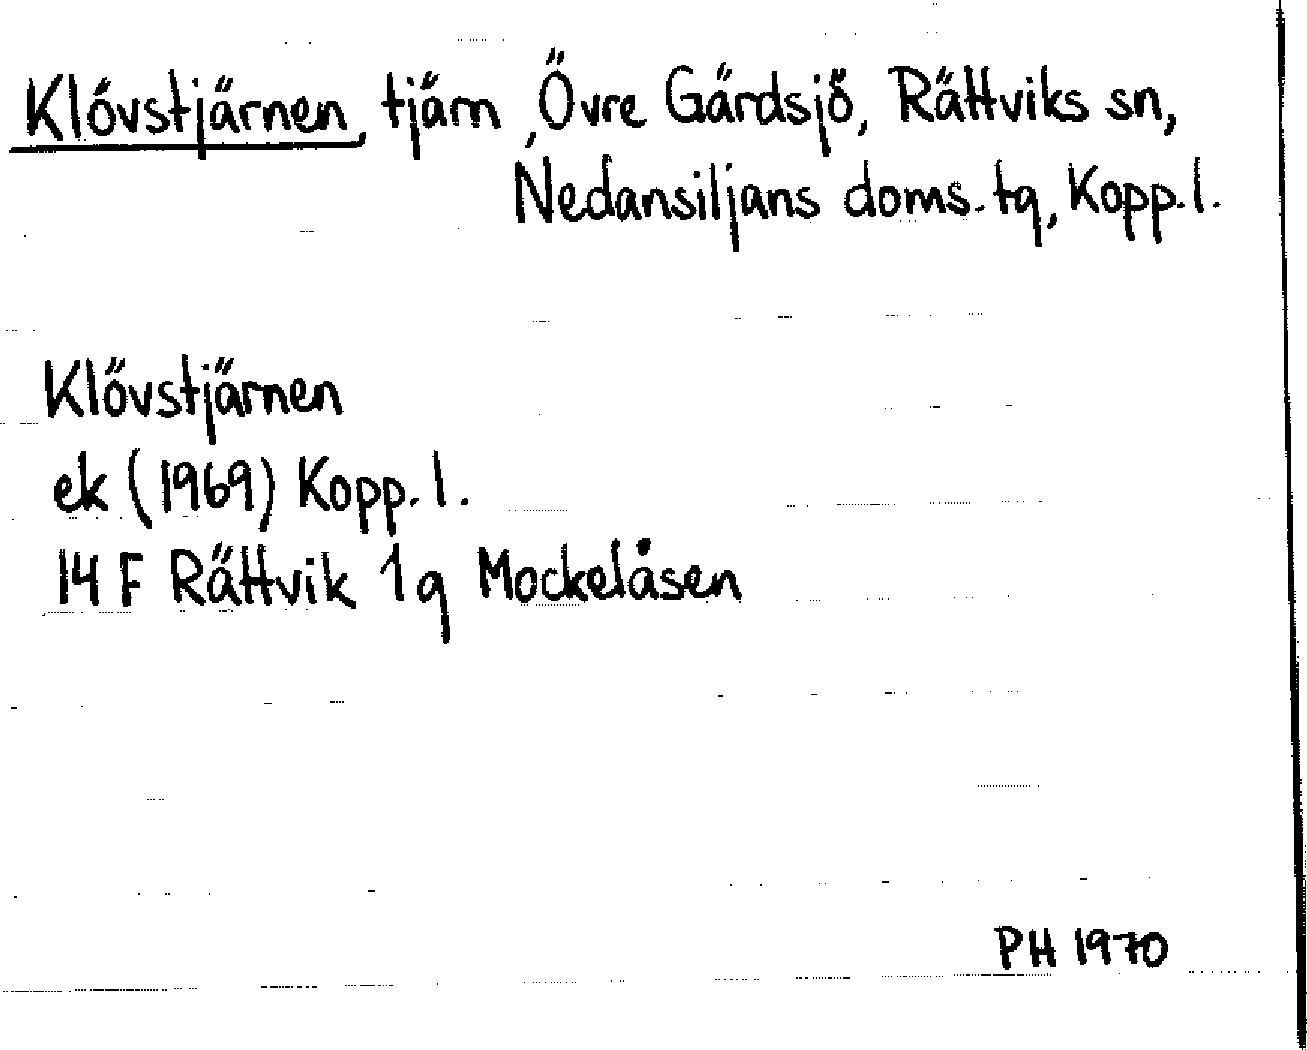 Klövstjärnen, tjärn, Övre Gärdsjö, Rättviks sn,
Nedansiljans doms. tg, Kopp. l.
Klövstjärnen
ek (1969) Kopp. l.
14 F Rättvik 1g Mockelåsen
PH 1970